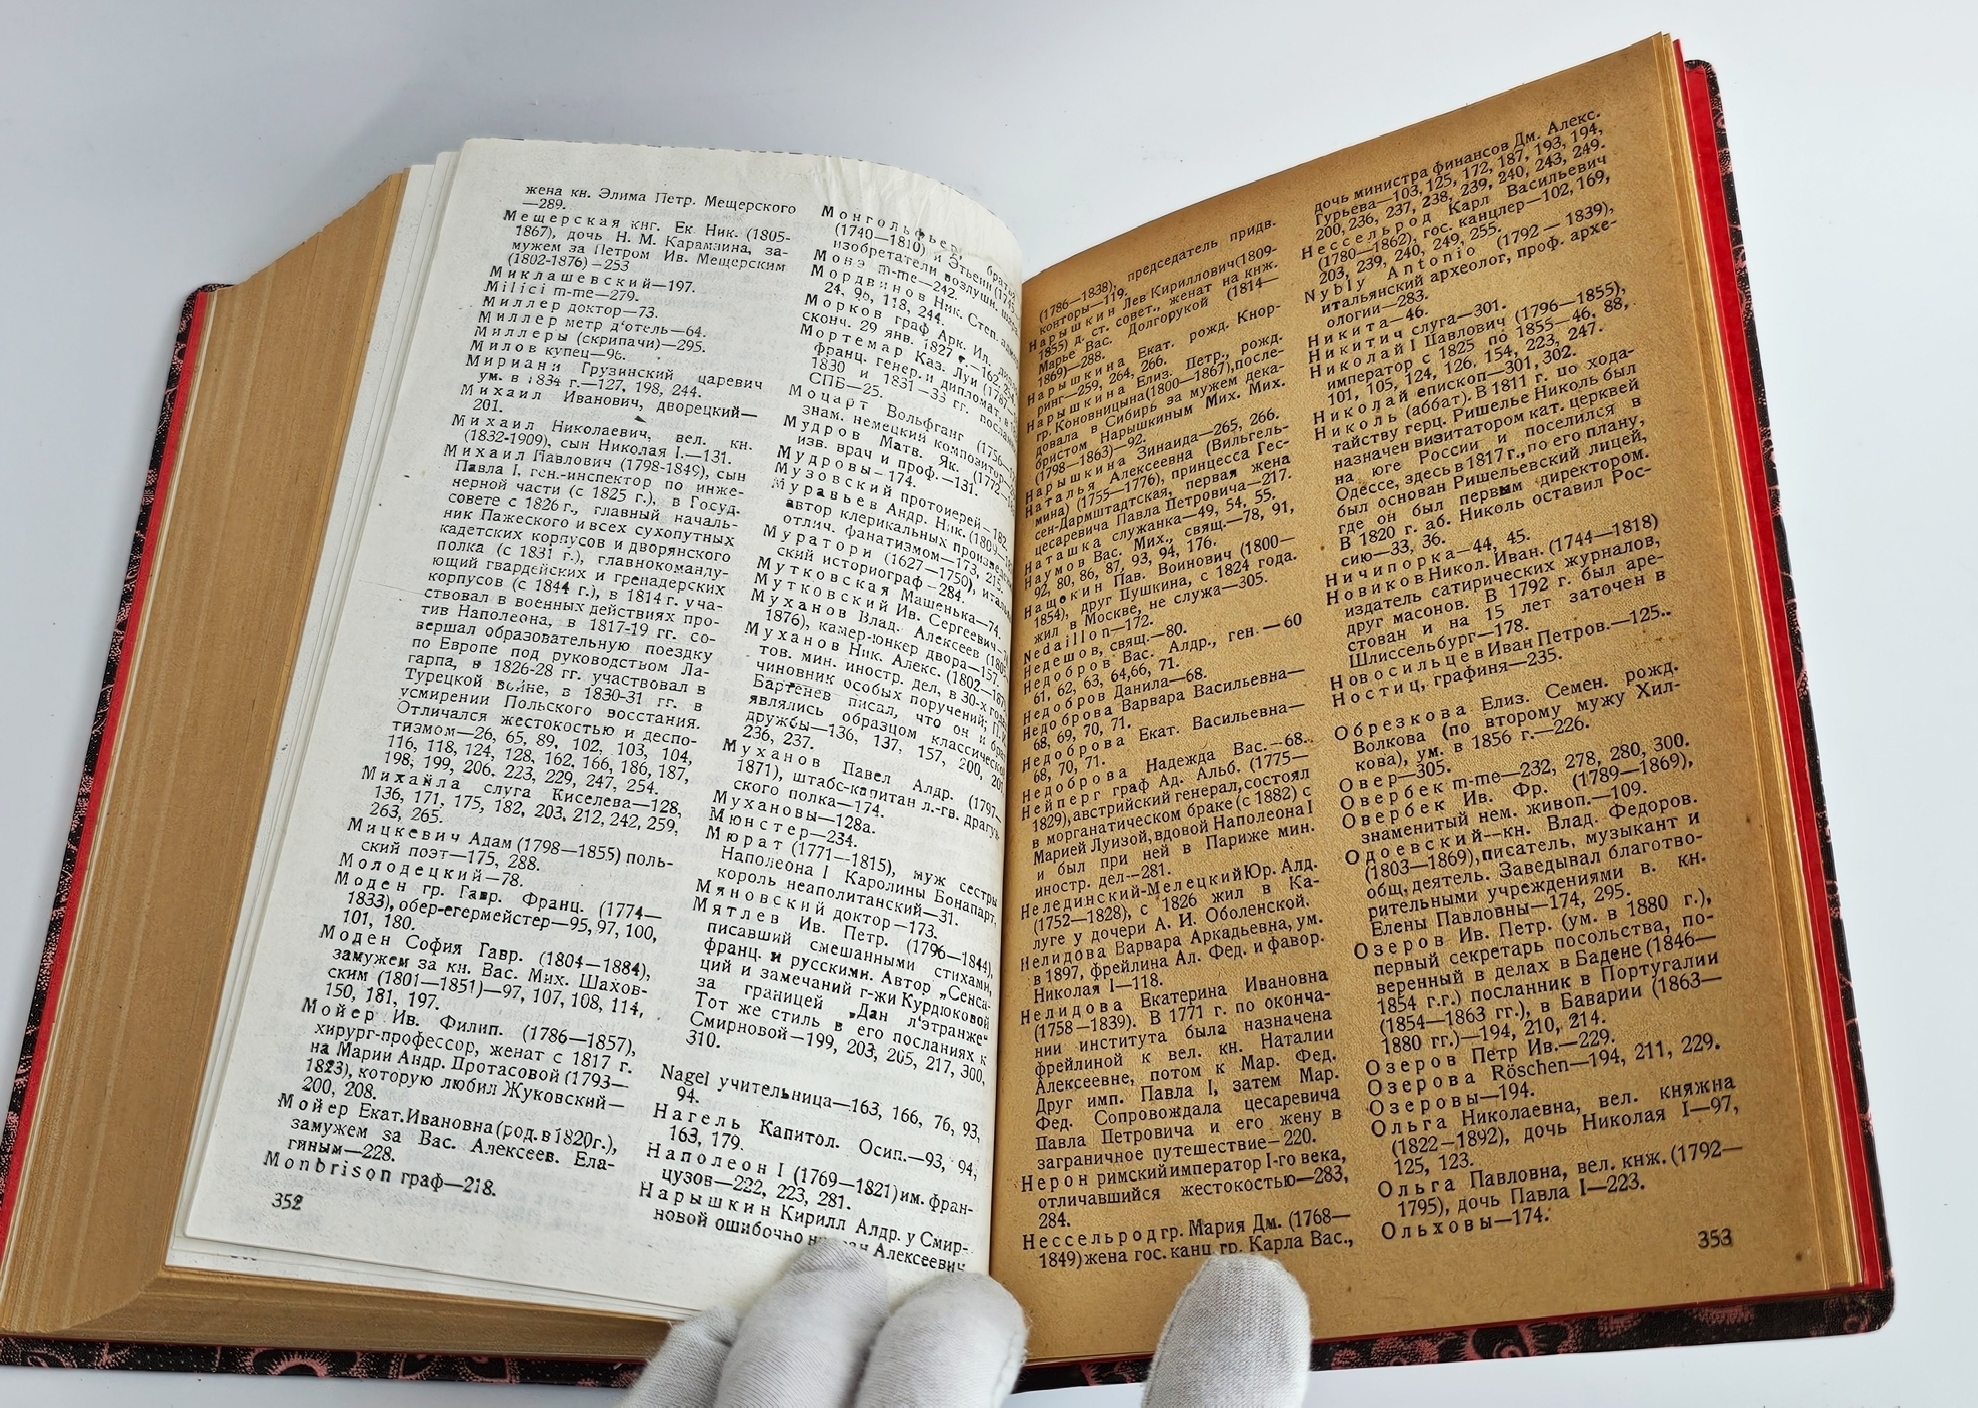 жена кн. Элима Петр. Мещерского
—289.
Мещерская кнг. Ек. Ник. (1805-
1867), дочь Н. М. Карамзина, за-
мужем за Петром Ив. Мещерским
(1802-1876)—253
Миклашевский—197.
Milici m-me—279.
Миллер доктор—73.
Миллер метр д'отель—64.
Миллеры (скрипачи)—295.
Милов купец—96.
Мириани Грузинский царевич
ум. в 1834 г.—127, 198, 244.
Михаил Иванович, дворецкий—
201.
Михаил Николаевич, вел. кн.
(1832-1909), сын Николая I.—131.
Михаил Павлович (1798-1849), сын
Павла I, ген.-инспектор по инже-
нерной части (с 1825 г.), в Госуд.
совете с 1826 г., главный началь-
ник Пажеского и всех сухопутных
кадетских корпусов и дворянского
полка (с 1831 г.), главнокоманду-
ющий гвардейских и гренадерских
корпусов (с 1844 г.), в 1814 г. уча-
ствовал в военных действиях про-
тив Наполеона, в 1817-19 гг. со-
вершал образовательную поездку
по Европе под руководством Ла-
гарпа, в 1826-28 гг. участвовал в
Турецкой войне, в 1830-31 гг. в
усмирении Польского восстания.
Отличался жестокостью и деспо-
тизмом—26, 65, 89, 102, 103, 104,
116, 118, 124, 128, 162, 166, 186, 187,
198, 199, 206. 223, 229, 247, 254.
Михайла слуга Киселева—128,
136, 171, 175, 182, 203, 212, 242, 259,
263, 265.
Мицкевич Адам (1798—1855) поль-
ский поэт—175, 288.
Молодецкий—78.
Моден гр. Гавр. Франц. (1774—
1833), обер-егермейстер—95, 97, 100,
101, 180.
Моден София Гавр. (1804—1884),
замужем за кн. Вас. Мих. Шахов-
ским (1801—1851)—97, 107, 108, 114,
150, 181, 197.
Мойер Ив. Филип. (1786—1857),
хирург-профессор, женат с 1817 г.
на Марии Андр. Протасовой (1793—
1823), которую любил Жуковский—
200, 208.
Мойер Екат. Ивановна (род. в 1820 г.),
замужем за Вас. Алексеев. Ела-
гиным—228.
Monbrison граф—218.
352
Монгольфьер,
(1740—1810) и Этьен
изобретатели воздушн.
Монэ m-me—242.
Мордвинов Ник. Степ.
24, 96, 118, 244.
Морков граф Арк. Ил.
сконч. 29 янв. 1827 г.—162
Мортемар Каз. Луи
франц. генер. и дипломат,
1830 и 1831—33 гг.
СПБ—25.
Моцарт Вольфганг (1756—
знам. немецкий композитор
Мудров Матв. Як. (1772—
изв. врач и проф.—131.
Мудровы—174.
Музовский протоиерей—182.
Муравьев Андр. Ник.
автор клерикальных
отлич. фанатизмом—173, 215.
Муратори (1627—1750),
ский историограф—284.
Мутковская Машенька—74.
Мутковский Ив. Сергеевич—
Муханов Влад. Алексеев
1876), камер-юнкер двора—157
Муханов Ник. Алекс.
тов. мин. иностр. дел, в 30-х
чиновник особых поручений;
Бартенев писал, что он и
являлись образцом классической
дружбы—136, 137, 157, 200,
236, 237.
Муханов Павел Алдр. (1797—
1871), штабс-капитан л.-гв. драгун-
ского полка—174.
Мухановы—128а.
Мюнстер—234.
Мюрат (1771—1815), муж сестры
Наполеона I Каролины Бонапарт,
король неаполитанский—31.
Мяновский доктор—173.
Мятлев Ив. Петр. (1796—1844),
писавший смешанными стихами,
франц. и русскими. Автор „Сенса-
ций и замечаний г-жи Курдюковой
за границей „Дан л'этранже"
Тот же стиль в его посланиях к
Смирновой—199, 203, 205, 217, 300,
310.
Nagel учительница—163, 166, 76, 93,
94.
Нагель Капитол. Осип.—93, 94,
163, 179.
Наполеон I (1769—1821) им. фран-
цузов—222, 223, 281.
Нарышкин Кирилл Алдр. у Смир-
новой ошибочно Алексеевич
(1786—1838), председатель придв.
конторы—119.
Нарышкин Лев Кириллович (1809-
1855) д. ст. совет., женат на княж.
Марье Вас. Долгорукой (1814—
1869)—288.
Нарышкина Екат. рожд. Кнор-
ринг—259, 264, 266.
Нарышкина Елиз. Петр., рожд.
гр. Коновницына (1800—1867), после-
довала в Сибирь за мужем дека-
бристом Нарышкиным Мих. Мих.
(1798—1863)—92.
Нарышкина Зинаида—265, 266.
Наталья Алексеевна (Вильгель-
мина) (1755—1776), принцесса Гес-
сен-Дармштадтская, первая жена
цесаревича Павла Петровича—217.
Наташка служанка—49, 54, 55.
Наумов Вас. Мих., свящ.—78, 91,
92, 80, 86, 87, 93, 94, 176.
Нащокин Пав. Воинович (1800—
1854), друг Пушкина, с 1824 года.
жил в Москве, не служа—305.
Nedaillon—172.
Недешов, свящ.—80.
Недобров Вас. Алдр., ген.—60
61, 62, 63, 64, 66, 71.
Недобров Данила—68.
Недоброва Варвара Васильевна—
68, 69, 70, 71.
Недоброва Екат. Васильевна—
68, 70, 71.
Недоброва Надежда Вас.—68.
Нейперг граф Ад. Альб. (1775—
1829), австрийский генерал, состоял
в морганатическом браке (с 1882) с
Марией Луизой, вдовой Наполеона I
и был при ней в Париже мин.
иностр. дел—281.
Нелединский-Мелецкий Юр. Алд.
(1752—1828), с 1826 жил в Ка-
луге у дочери А. И. Оболенской.
Нелидова Варвара Аркадьевна, ум.
в 1897, фрейлина Ал. Фед. и фавор.
Николая I—118.
Нелидова Екатерина Ивановна
(1758—1839). В 1771 г. по оконча-
нии института была назначена
фрейлиной к вел. кн. Наталии
Алексеевне, потом к Мар. Фед.
Друг имп. Павла I, затем Мар.
Фед. Сопровождала цесаревича
Павла Петровича и его жену в
заграничное путешествие—220.
Нерон римский император I-го века,
отличавшийся жестокостью—283,
284.
Нессельрод гр. Мария Дм. (1768—
1849) жена гос. канц. гр. Карла Вас.,
дочь министра финансов Дм. Алекс.
Гурьева—103, 125, 172, 187, 193, 194,
200, 236, 237, 238, 239, 240, 243, 249.
Нессельрод Карл Васильевич
(1780—1862), гос. канцлер—102, 169,
203, 239, 240, 249, 255.
Nybly Antonio (1792—1839),
итальянский археолог, проф. архе-
ологии—283.
Никита—46.
Никитич слуга—301.
Николай I Павлович (1796—1855),
император с 1825 по 1855—46, 88,
101, 105, 124, 126, 154, 223, 247.
Николай епископ—301, 302.
Николь (аббат). В 1811 г. по хода-
тайству герц. Ришелье Николь был
назначен визитатором кат. церквей
на юге России и поселился в
Одессе, здесь в 1817 г., по его плану,
был основан Ришельевский лицей,
где он был первым директором.
В 1820 г. аб. Николь оставил Рос-
сию—33, 36.
Ничипорка—44, 45.
Новиков Никол. Иван. (1744—1818)
издатель сатирических журналов,
друг масонов. В 1792 г. был аре-
стован и на 15 лет заточен в
Шлиссельбург—178.
Новосильцев Иван Петров.—125..
Ностиц, графиня—235.
Обрезкова Елиз. Семен. рожд.
Волкова (по второму мужу Хил-
кова), ум. в 1856 г.—226.
Овер—305.
Овербек m-me—232, 278, 280, 300.
Овербек Ив. Фр. (1789—1869),
знаменитый нем. живоп.—109.
Одоевский—кн. Влад. Федоров.
(1803—1869), писатель, музыкант и
общ. деятель. Заведывал благотво-
рительными учреждениями в. кн.
Елены Павловны—174, 295.
Озеров Ив. Петр. (ум. в 1880 г.),
первый секретарь посольства, по-
веренный в делах в Бадене (1846—
1854 г.г.) посланник в Португалии
(1854—1863 гг.), в Баварии (1863—
1880 гг.)—194, 210, 214.
Озеров Петр Ив.—229.
Озерова Röschen—194, 211, 229.
Озеровы—194.
Ольга Николаевна, вел. княжна
(1822—1892), дочь Николая I—97,
125, 123.
Ольга Павловна, вел. кнж. (1792—
1795), дочь Павла I—223.
Ольховы—174.
353